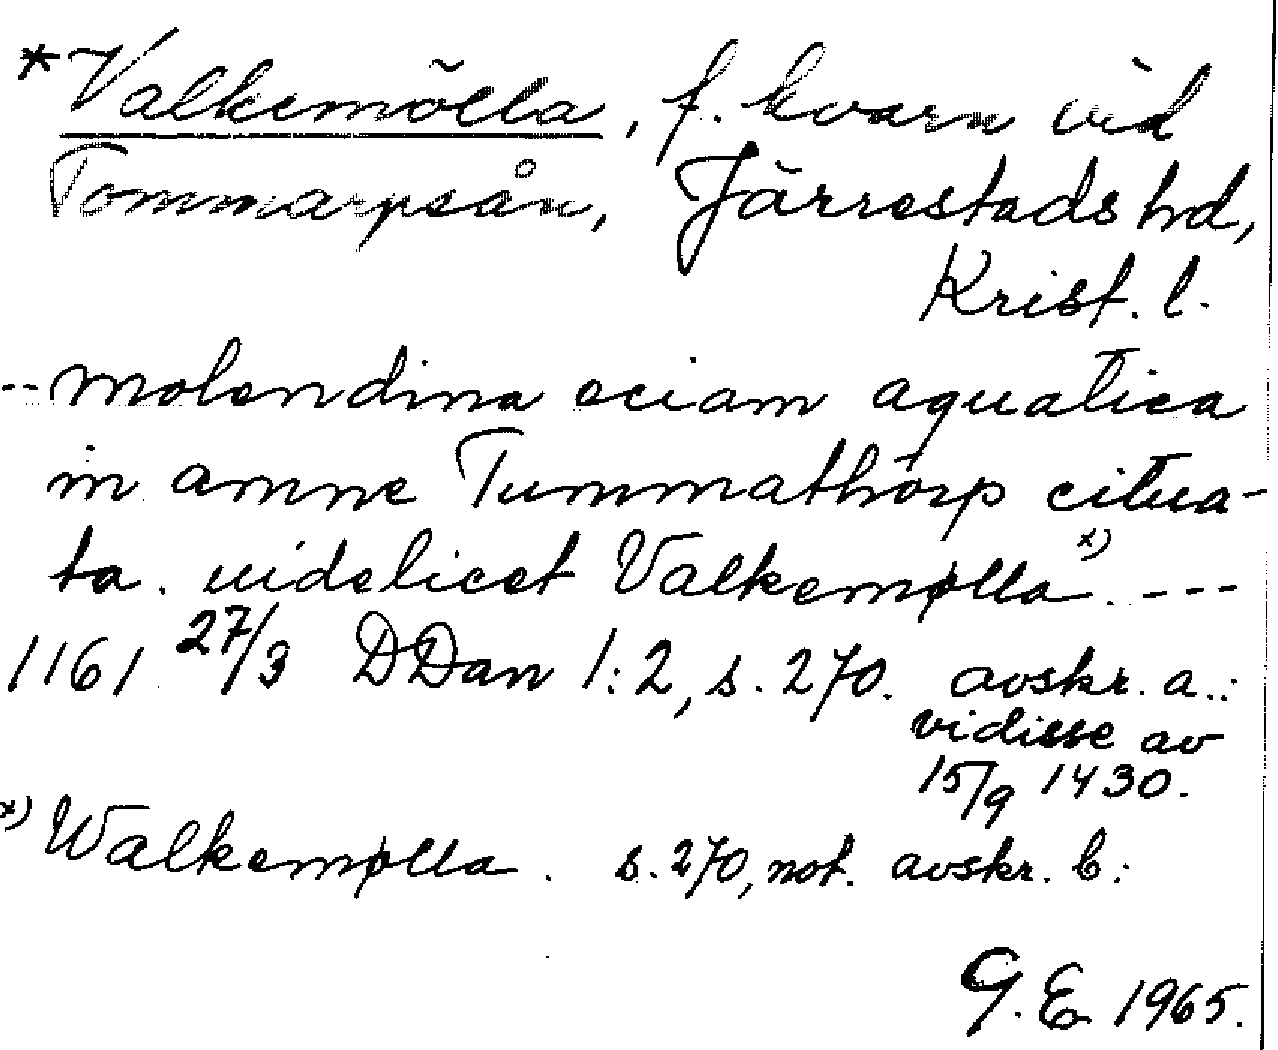 *Valkemölla, f. kvarn vid
Tommarpsån, Järrestads hd,
Krist. l.
-- molendina eciam aquatica
in amne Tummathorp citua-
ta. uidelicet Valkemølla x). ---
1161 27/3 DDan 1:2, s. 270. avskr. a.:
vidisse av
15/9 1430.
x) Walkemølla. s. 270, not. avskr. b.:
G. E. 1965.